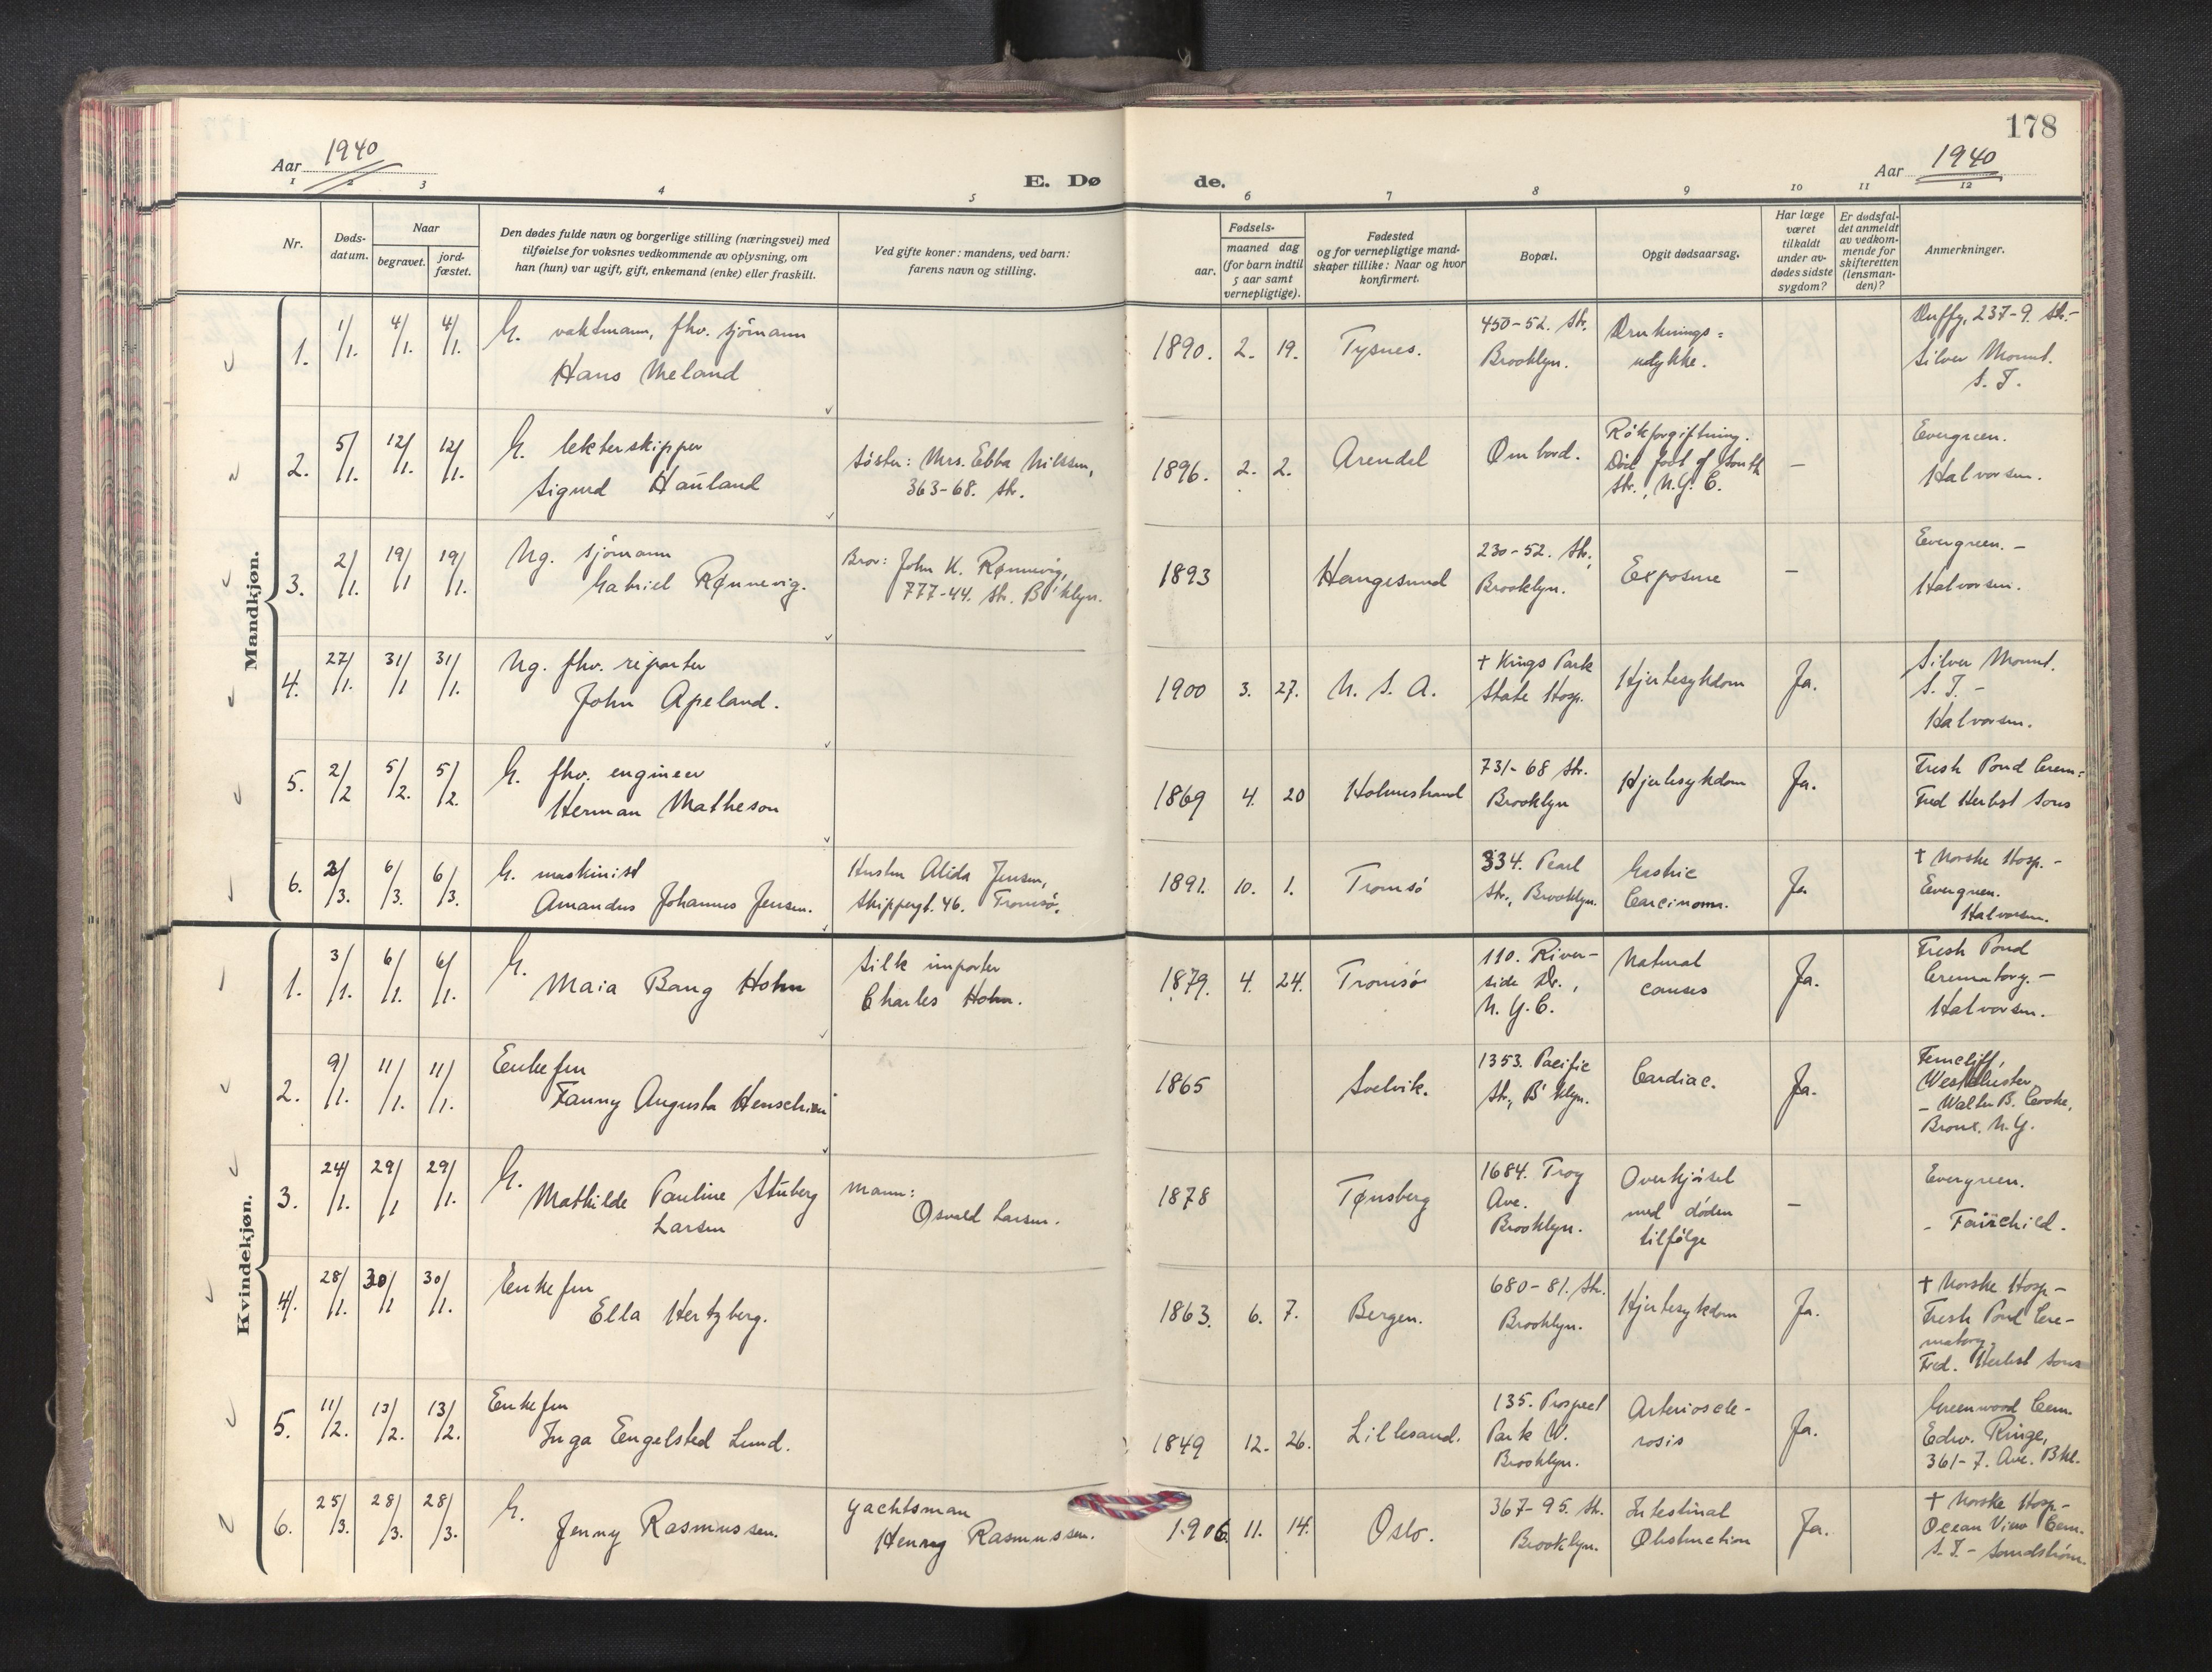 178
Aar 1940
E. Dø
de.
Aar 1940
1 2 3 4 5 6 7 8 9 10 11 12
Nr.
Døds-
datum.
Naar
begravet.
jord-
fæstet.
Den dødes fulde navn og borgerlige stilling (næringsvei) med
tilføielse for voksnes vedkommende av oplysning, om
han (hun) var ugift, gift, enkemand (enke) eller fraskilt.
Ved gifte koner: mandens, ved barn:
farens navn og stilling.
Fødsels-
aar.
maaned dag
(for barn indtil
5 aar samt
vernepligtige).
Fødested
og for vernepligtige mand-
skaper tillike: Naar og hvor
konfirmert.
Bopæl.
Opgit dødsaarsag.
Har læge
været
tilkaldt
under av-
dødes sidste
sygdom?
Er dødsfal-
det anmeldt
av vedkom-
mende for
skifteretten
(lensman-
den)?
Anmerkninger.
Mandkjøn.
1. 1/1. 4/1. 4/1.
G. vaktmann, fhv. sjömann
Hans Meland
1890. 2. 19. Tysnes.
450-52. Str.
Brooklyn.
Druknings=
ulykke.
Duffy, 237-9. Str.-
Silver Mount.
S. I.
2. 5/1. 12/1. 12/1.
G. lekterskipper
Sigurd Hauland
Søster: Mrs. Ebba Nilssen,
363-68. Str.
1896. 2. 2. Arendal
Ombord.
Rökforgiftning.
Död foot of South
Str., N.Y.C.
—
Evergreen.
Halvorsen.
3. 2/1. 19/1 19/1.
Ug. sjömann
Gabriel Rønnevig.
Bror: John K. Rønnevig,
777-44. Str. B'klyn.
1893 Haugesund
230-52. Str.,
Brooklyn.
Exposure
—
Evergreen. -
Halvorsen.
4. 27/1. 31/1 31/1.
Ug. fhv. reporter
John Apeland.
1900 3. 27. U. S. A.
+ Kings Park
State Hosp.
Hjertesykdom
Ja.
Silver Mount.
S. I. -
Halvorsen.
5. 2/2 5/2. 5/2.
G. fhv. engineer
Herman Matheson
1869 4. 20 Holmestrand
731-68 Str.
Brooklyn
Hjertesykdom
Ja.
Fresh Pond Crem.=
Fred Herbst Sons
6. 2/3. 6/3. 6/3.
G. maskinist
Amandus Johannes Jensen.
Hustru Alida Jensen,
Skippergt. 46. Tromsö.
1891. 10. 1. Tromsö
334. Pearl
Str., Brooklyn.
Gastric
Carcinoma.
Ja
+ Norske Hosp. -
Evergreen.
Halvorsen.
Kvindekjøn.
1. 3/1. 6/1. 6/1.
G.
Maia Bang Hohn
Silk importer
Charles Hohn.
1879. 4. 24. Tromsö
110. River-
side Dr.,
N. Y. C.
Natural
causes
Ja.
Fresh Pond
Crematory. -
Halvorsen.
2. 9/1. 11/1. 11/1.
Enkefru
Fanny Augusta Henschien
1865 Svelvik.
1353. Pacific
Str., B'klyn.
Cardiac.
Ja.
Ferncliff,
Westchester
- Walter B. Cooke,
Bronx. N.Y.
3. 24/1. 29/1 29/1.
G.
Mathilde Pauline Stuberg
Larsen
Mann:
Osvald Larsen.
1878 Tønsberg
1684. Troy
Ave.
Brooklyn.
Overkjörsel
med döden
tilfölge
—
Evergreen.
- Fairchild.
4. 28/1. 30/1 30/1.
Enkefru
Ella Hertzberg.
1863. 6. 7. Bergen.
680-81. Str.
Brooklyn.
Hjertesykdom
Ja.
+ Norske Hosp -
Fresh Pond Cre-
matory.
Fred. Herbst Sons
5. 11/2. 13/2. 13/2.
Enkefru
Inga Engelsted Lund.
1849 12. 26. Lillesand.
135. Prospect
Park W.
Brooklyn.
Arterioscle-
rosis
Ja.
Greenwood Cem.
Edw. Ringe,
361-7. Ave. Bkl.
6. 25/3. 28/3. 28/3.
G.
Jenny Rasmussen.
Yachtsman
Henry Rasmussen.
1906 11. 14. Oslo.
367-95. Str.
Brooklyn.
Intestinal
Obstruction
Ja.
+ Norske Hosp -
Ocean View Cem.
S. I. - Sandström.